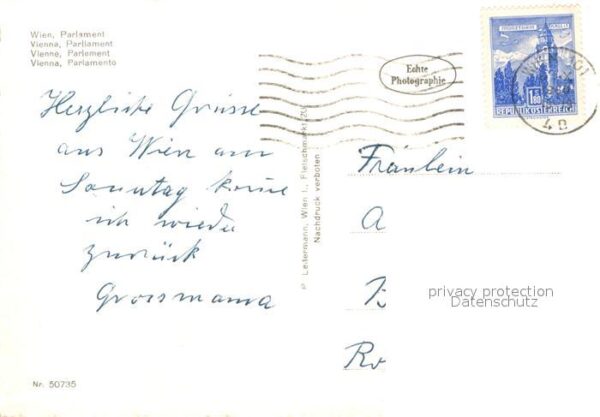 Wien, Parlament
Vienna, Parliament
Vienne, Parlement
Vienna, Parlamento
Herzliche Grüsse
aus Wien am
Sonntag komme
ich wieder
zurück
Grossmama
Nr. 50735
P. Ledermann, Wien I., Fleischmarkt 20
Nachdruck verboten
Echte
Photographie
1.80
REPUBLIK ÖSTERREICH
Fräulein
A
Ro
privacy protection
Datenschutz